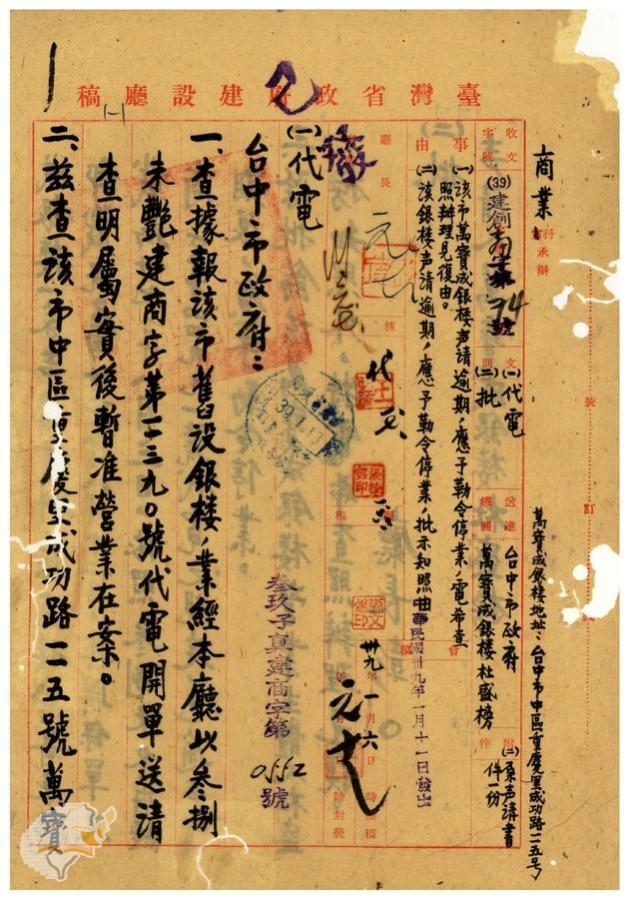 臺灣省政府建設廳稿
商業科承辦
萬寶成銀樓地址：台中市中區重慶里成功路一二五号
收文字號
(39)建創字第74號
文別
(一)代電
(二)批
送達機關
台中市政府
萬寶成銀樓杜盛榜
附件
(二)原声請書一份
事由
(一)該市萬寶成銀樓声請逾期，應予勒令停業，電希查照辦理見復由。
(二)該銀樓声請逾期，應予勒令停業，批示知照由
中華民國卅九年一月十一日發出
廳長
核
卅九年一月六日
時核稿
時封發
39.1.11
發
叁玖子真建商字第0552號
(一)代電
台中市政府：
一、查據報該市舊設銀樓，業經本廳以叄捌
未艷建商字第一二三九〇號代電開單送請
查明屬實後暫准營業在案。
二、茲查該市中區重慶里成功路一二五號萬寶
裝
訂